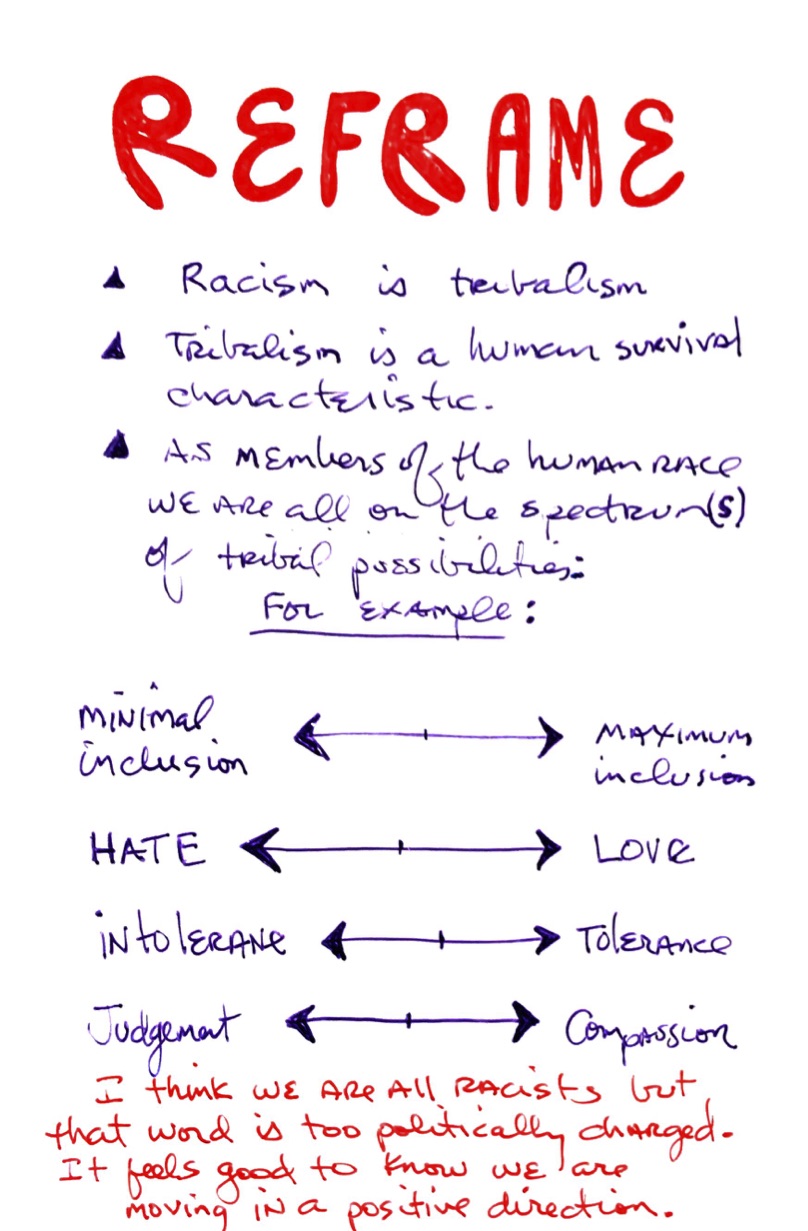 REFRAME
▲ Racism is tribalism
▲ Tribalism is a human survival
characteristic.
▲ AS MEMbers of the human RACE
WE ARE all on the spectrum(s)
of tribal possibilities:
For Example:
MiNiMal MAXIMUM
inclusion inclusion
HATE LOVE
iNtolERANE TolERAnce
Judgement Compassion
I think WE ARE All RAcists but
that word is too politically chARged.
It feels good to know we are
moving iN a positive direction.